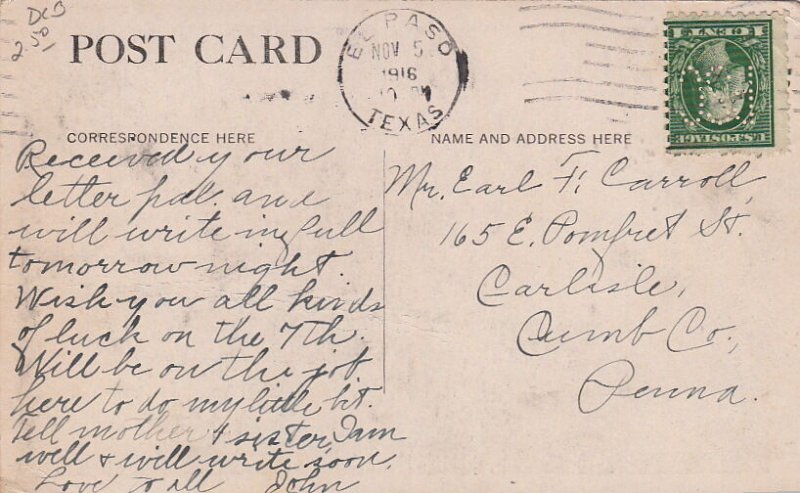 DCB
2 50
POST CARD
EL PASO
NOV 5
1916
TEXAS
ONE CENT
U.S. POSTAGE
CORRESPONDENCE HERE
Received your
letter pal. and
will write in full
tomorrow night.
Wish you all kinds
of luck on the 7th.
Will be on the job
here to do my little bit.
Tell mother & sister, I am
well & will write soon.
Love to all John
NAME AND ADDRESS HERE
Mr. Earl F. Carroll,
165 E. Pomfret St.
Carlisle,
Cumb Co.,
Penna.